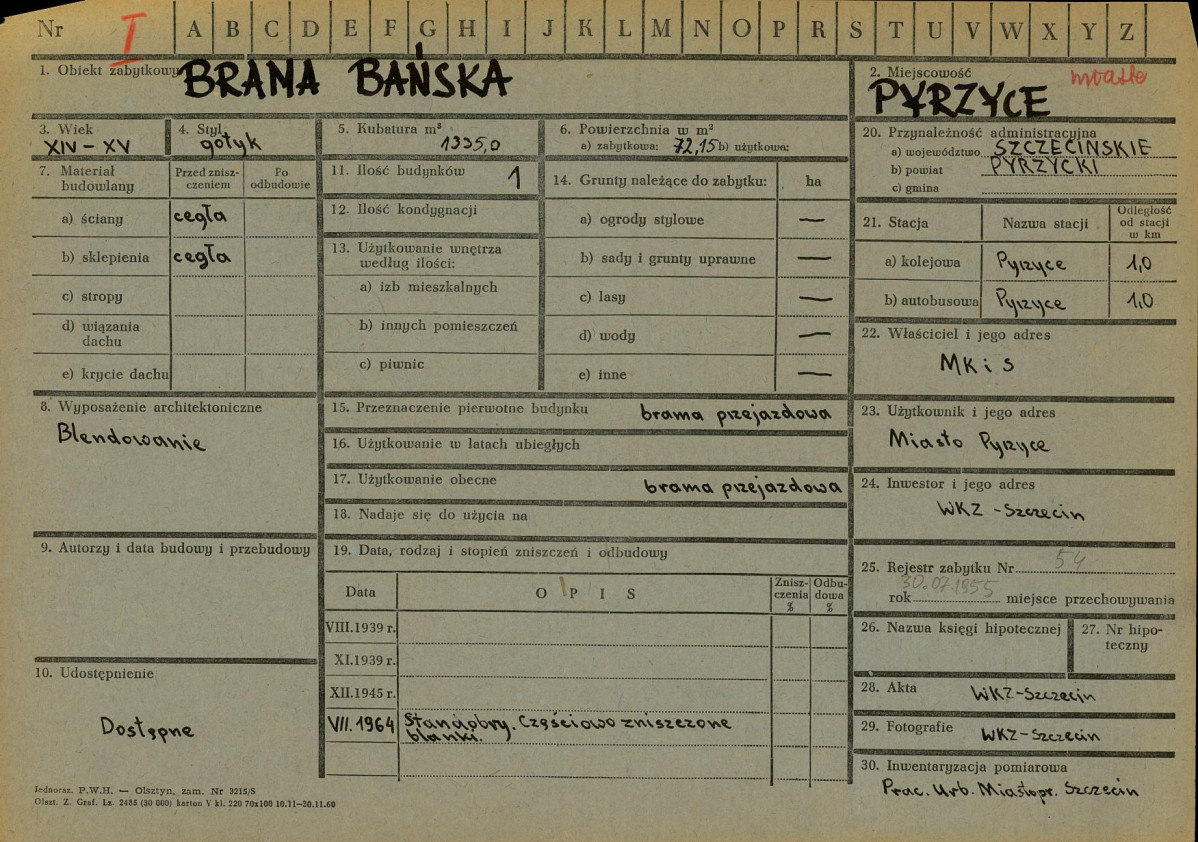 Nr I A B C D E F G H I J K L M N O P R S T U V W X Y Z
1. Obiekt zabytkowy BRAMA BAŃSKA
2. Miejscowość miasto
PYRZYCE
3. Wiek
XIV – XV
4. Styl
gotyk
5. Kubatura m³
1335,0
6. Powierzchnia w m²
a) zabytkowa: 72,15 b) użytkowa:
7. Materiał budowlany
Przed znisz-
czeniem
Po
odbudowie
a) ściany cegła
b) sklepienia cegła
c) stropy
d) wiązania
dachu
e) krycie dachu
8. Wyposażenie architektoniczne
Blendowanie
9. Autorzy i data budowy i przebudowy
10. Udostępnienie
Dostępne
11. Ilość budynków 1
12. Ilość kondygnacji
13. Użytkowanie wnętrza
według ilości:
a) izb mieszkalnych
b) innych pomieszczeń
c) piwnic
14. Grunty należące do zabytku: ha
a) ogrody stylowe —
b) sady i grunty uprawne —
c) lasy —
d) wody —
e) inne —
15. Przeznaczenie pierwotne budynku brama przejazdowa
16. Użytkowanie w latach ubiegłych
17. Użytkowanie obecne brama przejazdowa
18. Nadaje się do użycia na
19. Data, rodzaj i stopień zniszczeń i odbudowy
Data O P I S
Znisz-
czenia
%
Odbu-
dowa
%
VIII.1939 r.
XI.1939 r.
XII.1945 r.
VII. 1964 Stan dobry. Częściowo zniszczone
blanki.
20. Przynależność administracyjna
a) województwo SZCZECIŃSKIE
b) powiat PYRZYCKI
c) gmina
21. Stacja Nazwa stacji
Odległość
od stacji
w km
a) kolejowa Pyrzyce 1,0
b) autobusowa Pyrzyce 1,0
22. Właściciel i jego adres
MK i S
23. Użytkownik i jego adres
Miasto Pyrzyce
24. Inwestor i jego adres
WKZ - Szczecin
25. Rejestr zabytku Nr 54
rok 30.07.1955 miejsce przechowywania
26. Nazwa księgi hipotecznej
27. Nr hipo-
teczny
28. Akta WKZ-Szczecin
29. Fotografie WKZ-Szczecin
30. Inwentaryzacja pomiarowa
Prac. Urb. Miastopr. Szczecin
Jednoraz. P.W.H. — Olsztyn, zam. Nr 3215/S
Olszt. Z. Graf. Lz. 2485 (30 000) karton V kl. 220 70x100 10.11—30.11.60